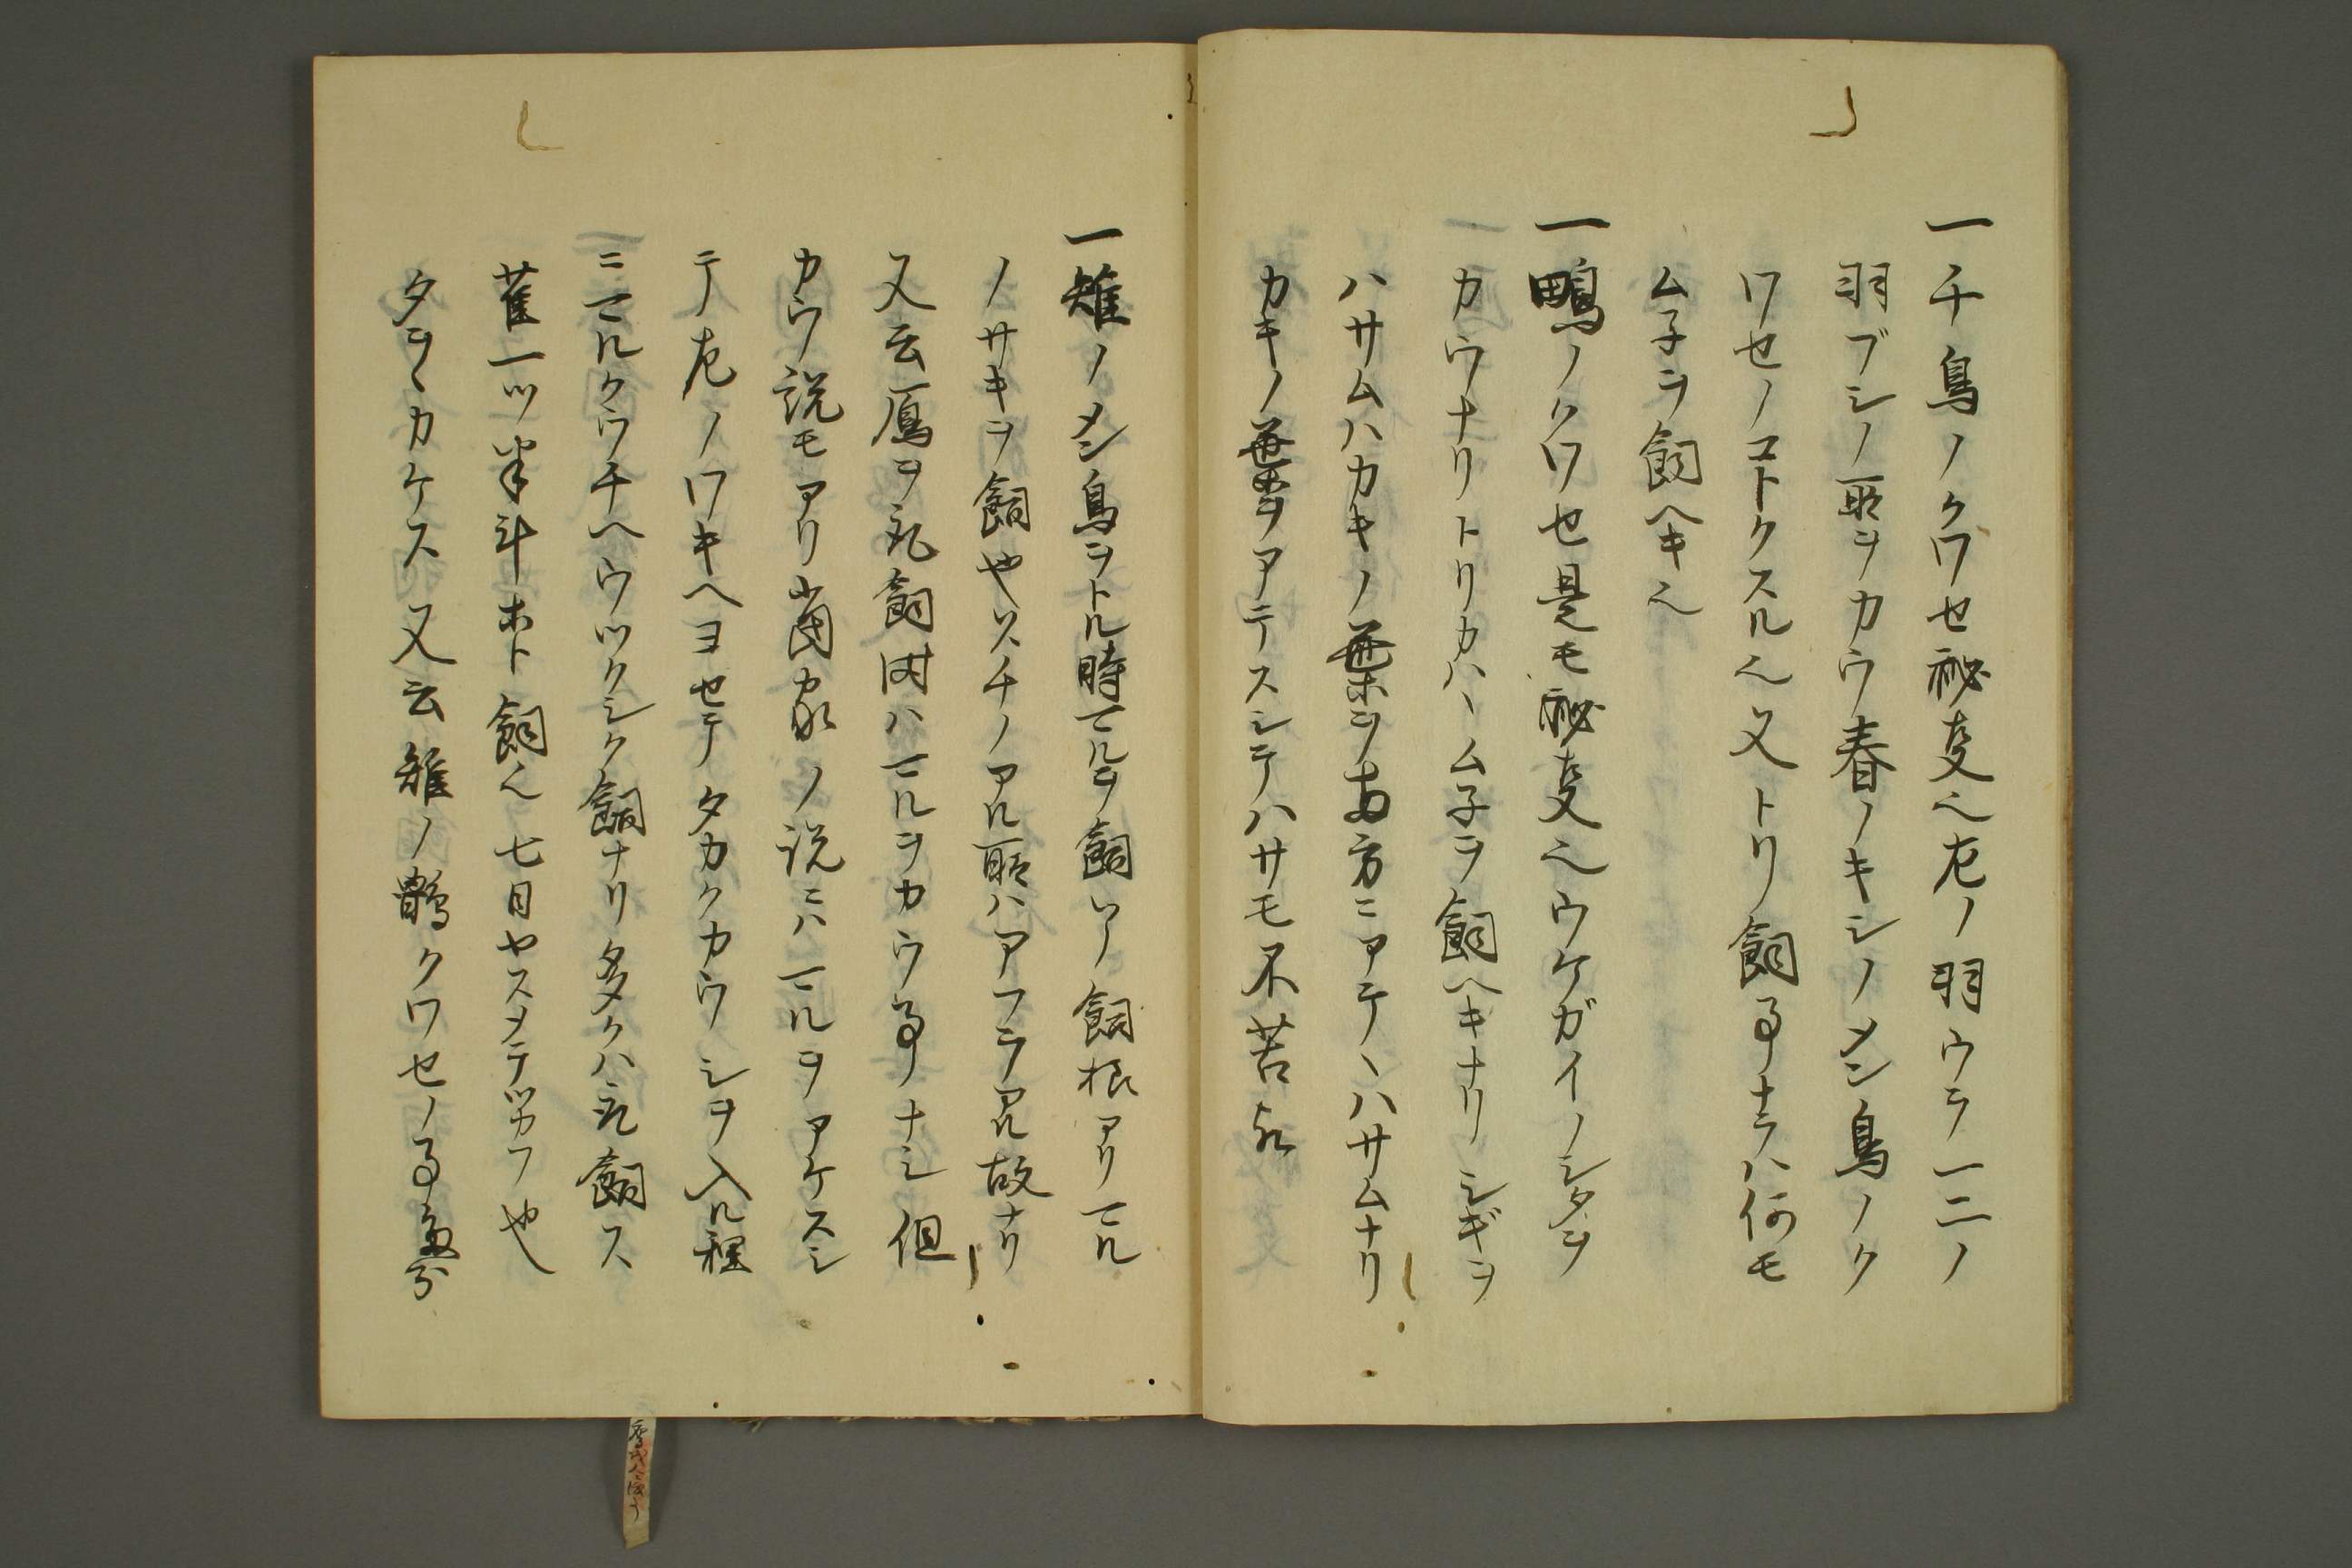 一千鳥ノクワセ秘事也左ノ羽ウラ一二ノ
羽ブシノ所ヲカウ春ノキシノメン鳥ノク
ワセノコトクスル也又トリ飼事ナラハ何モ
ムネヲ飼ヘキ也
一鴫ノクワセ是モ秘事也ウケガイノシタヲ
カウナリトリカハヽムネヲ飼ヘキナリシギヲ
ハサムハカキノ葉ホヲ両方ニアテヽハサムナリ
カキノ葉ヲアテスシテハサモ不苦候
一雉ノメン鳥ヲトル時マルヲ飼ソノ飼様アリマル
ノサキヲ飼ヤスチノアル所ハアフラアル故ナリ
又云鷹ヲ丸飼時ハマルヲカウ事ナシ但
カウ説モアリ家ノ説ニハマルヲアケスシ
テ左ノワキヘヨセテタカクカウシヲ入ル程
ニマルクウチヘウツクシク飼ナリ多クハ丸飼ス
雀一ツ半斗ホト飼也七日ヤスメテツカフ也
タヲヽカケス又云雉ノクワセノ事